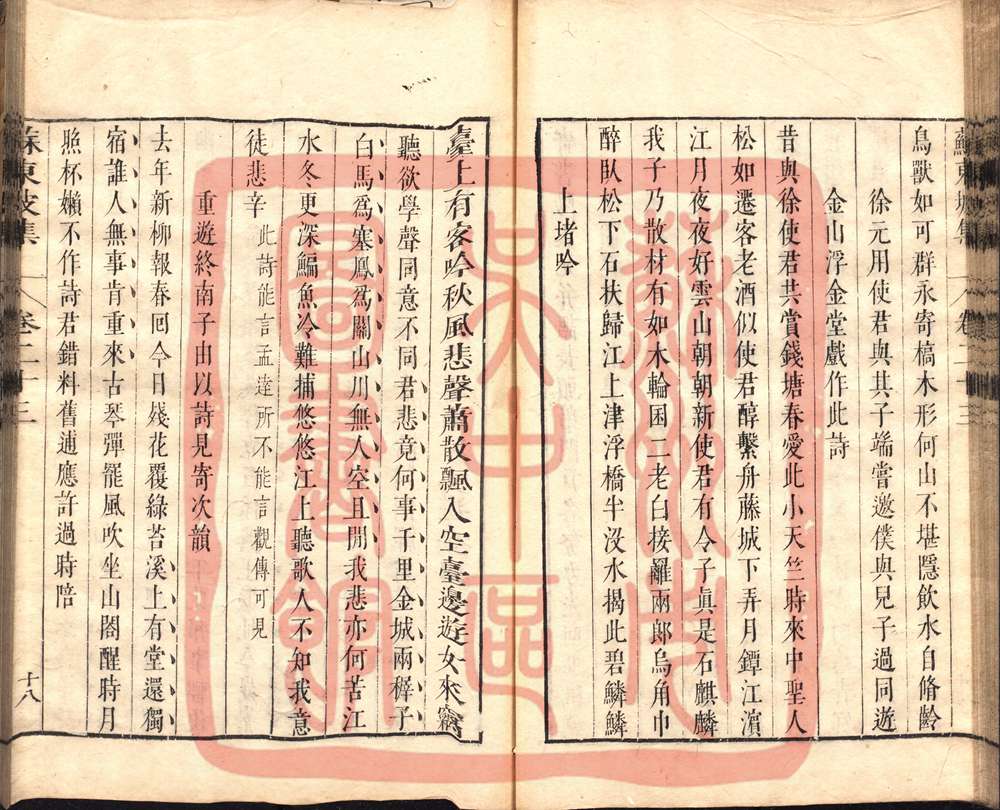 蘇東坡集 卷二十三
鳥獸如可群永寄槁木形何山不堪隱飲水自脩齡
徐元用使君與其子端嘗邀僕與兒子過同遊
金山浮金堂戲作此詩
昔與徐使君共賞錢塘春愛此小天竺時來中聖人
松如遷客老酒似使君醇繫舟藤城下弄月鐔江濱
江月夜夜好雲山朝朝新使君有令子眞是石麒麟
我子乃散材有如木輪囷二老白接䍦兩郎烏角巾
醉臥松下石扶歸江上津浮橋半沒水揭此碧鱗鱗
上堵吟
臺上有客吟秋風悲聲蕭散飄入空臺邊遊女來竊
聽欲學聲同意不同君悲竟何事千里金城兩穉子
白馬爲塞鳳爲關山川無人空且閒我悲亦何苦江
水冬更深鯿魚冷難捕悠悠江上聽歌人不知我意
徒悲辛 此詩能言孟達所不能言觀傳可見
重遊終南子由以詩見寄次韻
去年新柳報春回今日殘花覆綠苔溪上有堂還獨
宿誰人無事肯重來古琴彈罷風吹坐山閣醒時月
照杯嬾不作詩君錯料舊逋應許過時陪
蘇東坡集 卷二十三 十八
藝術典
大中區
圖書館